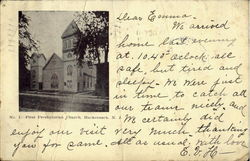 Dear Emma.
We arrived
home last evening
at 10.40 o'clock. all
safe, but tired and
sleepy. We were just
in time to catch all
our trains nicely.
We certainly did
enjoy our visit very much. thanking
you for same. all as usual, with love
E. V. H
No. 1 - First Presbyterian Church, Hackensack, N. J.